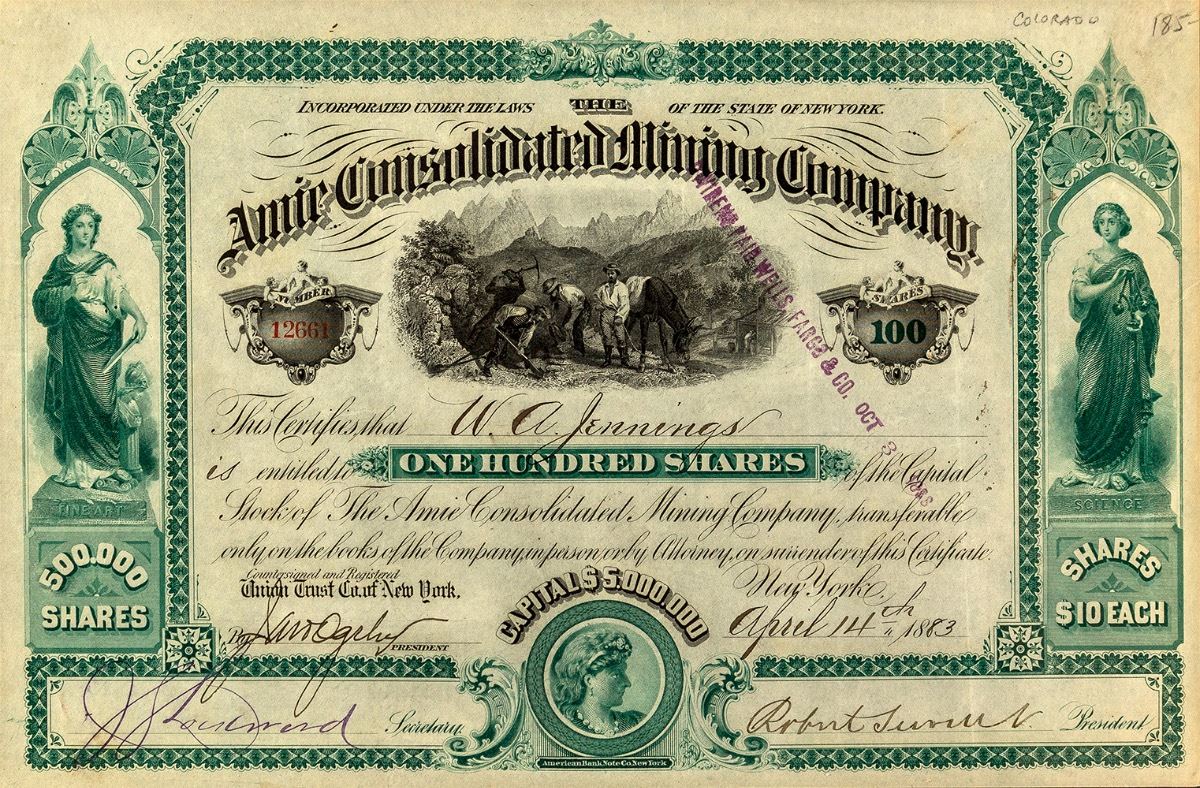 COLORADO 185-
INCORPORATED UNDER THE LAWS THE OF THE STATE OF NEW YORK.
Amie Consolidated Mining Company.
NUMBER
12661
SHARES
100
WELLS, FARGO & CO. OCT 3
This Certifies that W. A. Jennings
is entitled to ONE HUNDRED SHARES of the Capital
Stock of The Amie Consolidated Mining Company, transferable
only on the books of the Company, in person or by Attorney, on surrender of this Certificate.
Countersigned and Registered
Union Trust Co. of New York.
By
PRESIDENT
New York
April 14th 1883
CAPITAL $5.000.000
FINE ART
500.000
SHARES
SCIENCE
SHARES
$10 EACH
Secretary.
Robert President
American Bank Note Co. New York